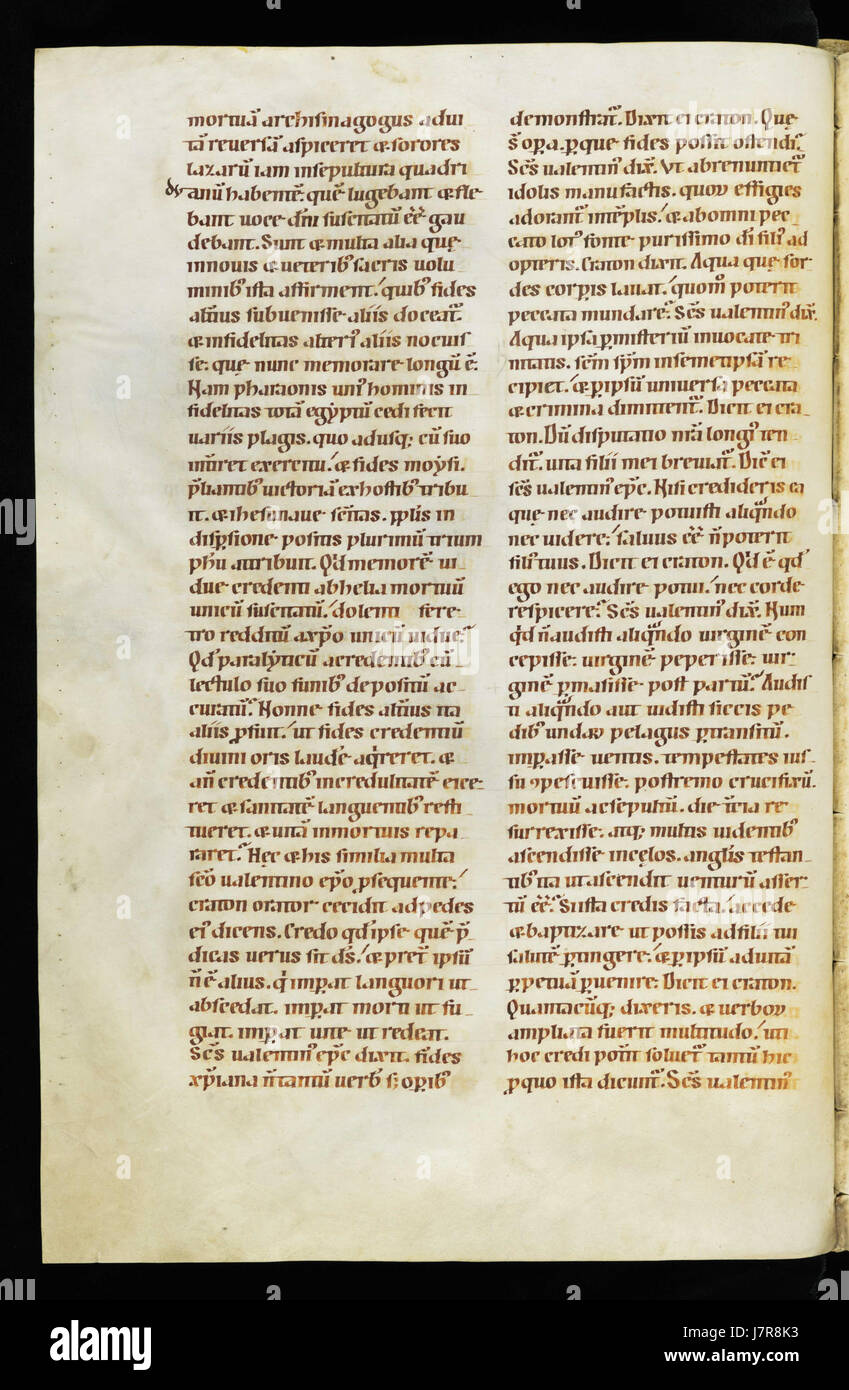 mortuā archisinagogus adui
tā reuersā aspiceret & sorores
lazarū iam insepultura quadri
duanū habentē. quē lugebant & fle
bant uoce dn̄i suscitatū eē gau
debant. Sunt & multa alia quę
innouis & ueteribꝰ sacris uolu
minibꝰ ista affirment. quibꝰ fides
alteriꝰ subuenisse aliis doceat̄.
& infidelitas alteriꝰ aliis nocuis
se. quę nunc memorare longū ē.
Nam pharaonis uniꝰ hominis in
fidelitas totā egẏptū cędi fecit
uariis plagis. quo adusq; cū suo
int̄iret exercitu. & fides moẏsi.
p̄liantibꝰ uictoriā exhostibꝰ tribu
it. & ihesu naue sc̄ītas. ip̄lis in
disp̱sione positis plurimū trium
phū attribuit. Qd̄ memorē ui
due credenti abhelia mortuū
unicū suscitatū. dolenti fere
tro redditū a xp̄o unicū uiduę.
Qd̄ paralẏticū a credentibꝰ cū
lectulo suo funibꝰ depositū ac
curatū. Nonne fides alteriꝰ ita
aliis ꝓfuit. ut fides credentiū
diuini oris laudē aq̄reret. &
an̄ credentibꝰ incredulitatē eice
ret & sanitatē languentibꝰ resti
tueret. & uitā inmortuis repa
raret. Hęc & his similia multa
sc̄o ualentino ep̄o ꝓsequente.
craton orator cecidit ad pedes
eiꝰ dicens. Credo qd̄ ipse quē p̄
dicas uerus sit ds̄. & pret̄ ipsū
n̄ ē alius. q̄ imp̱at languori ut
abscedat. imp̱at morti ut fu
giat. imp̱at uitę ut redeat.
Scs̄ ualentinꝰ ep̄c dixit. fides
xp̄iana n̄ tantū uerbꝰ s; op̱ibꝰ
demonstrat̄. Dixit ei craton. Quę
s̄ op̱a. p̱que fides possit ostendi.
Scs̄ ualentinꝰ dix̄. Vt abrenuntiet̄
idolis manu factis. quoꝝ effigies
adorant̄ intēplis. & abomni pec
cato lotꝰ fonte purissimo dī filiꝰ ad
opteris. Craton dixit. Aqua que sor
des corp̱is lauat. quom̄ poterit
peccata mundare. Scs̄ ualentinꝰ dix̄.
Aqua ipsa p̱ misteriū inuocate tri
nitatis. sc̄m sp̄m insemetipsā re
cipiet. & p̱ ipsū uniuersa peccata
& crimina dimittent̄. Dicit ei cra
ton. Dū disputatio nr̄a longiꝰ ten
dit̄. uita filii mei breuiat̄. Dic̄ ei
scs̄ ualentinꝰ ep̄c. Nisi credideris ea
que nec audire potuisti aliq̄ndo
nec uidere. saluus eē n̄ poterit
filiꝰ tuus. Dicit ei craton. Qd̄ ē qd̄
ego nec audire potui. nec corde
respicere. Scs̄ ualentinꝰ dix̄. Num
qd̄ n̄ audisti aliq̄ndo uirginē con
cepisse. uirginē peperisse. uir
ginē p̱mansisse post partū. Audis
ti aliq̄ndo aut uidisti siccis pe
dibꝰ undaꝝ pelagus p̱transitū.
imp̱asse uentis. tempestates ius
su ꝯpescuisse. postremo crucifixū.
mortuū ac sepultū. die t̄cia re
surrexisse. atq; multis uidentibꝰ
ascendisse incęlos. anglīs testan
tibꝰ ita ut ascendit uenturū asser
tū eē. Si ista credis facta. accede
& baptizare ut possis ad filii tui
salutē p̱tingere. & p̱ ipsū ad uitā
p̱petuā p̱uenire. Dicit ei craton.
Quantacūq; dixeris. & uerboꝝ
ampliata fuerit multitudo. uti
hoc credi potīt soluet̄ tantū hic
p̱quo ista dicunt̄. Scs̄ ualentinꝰ
alamy
J7R8K3
www.alamy.com